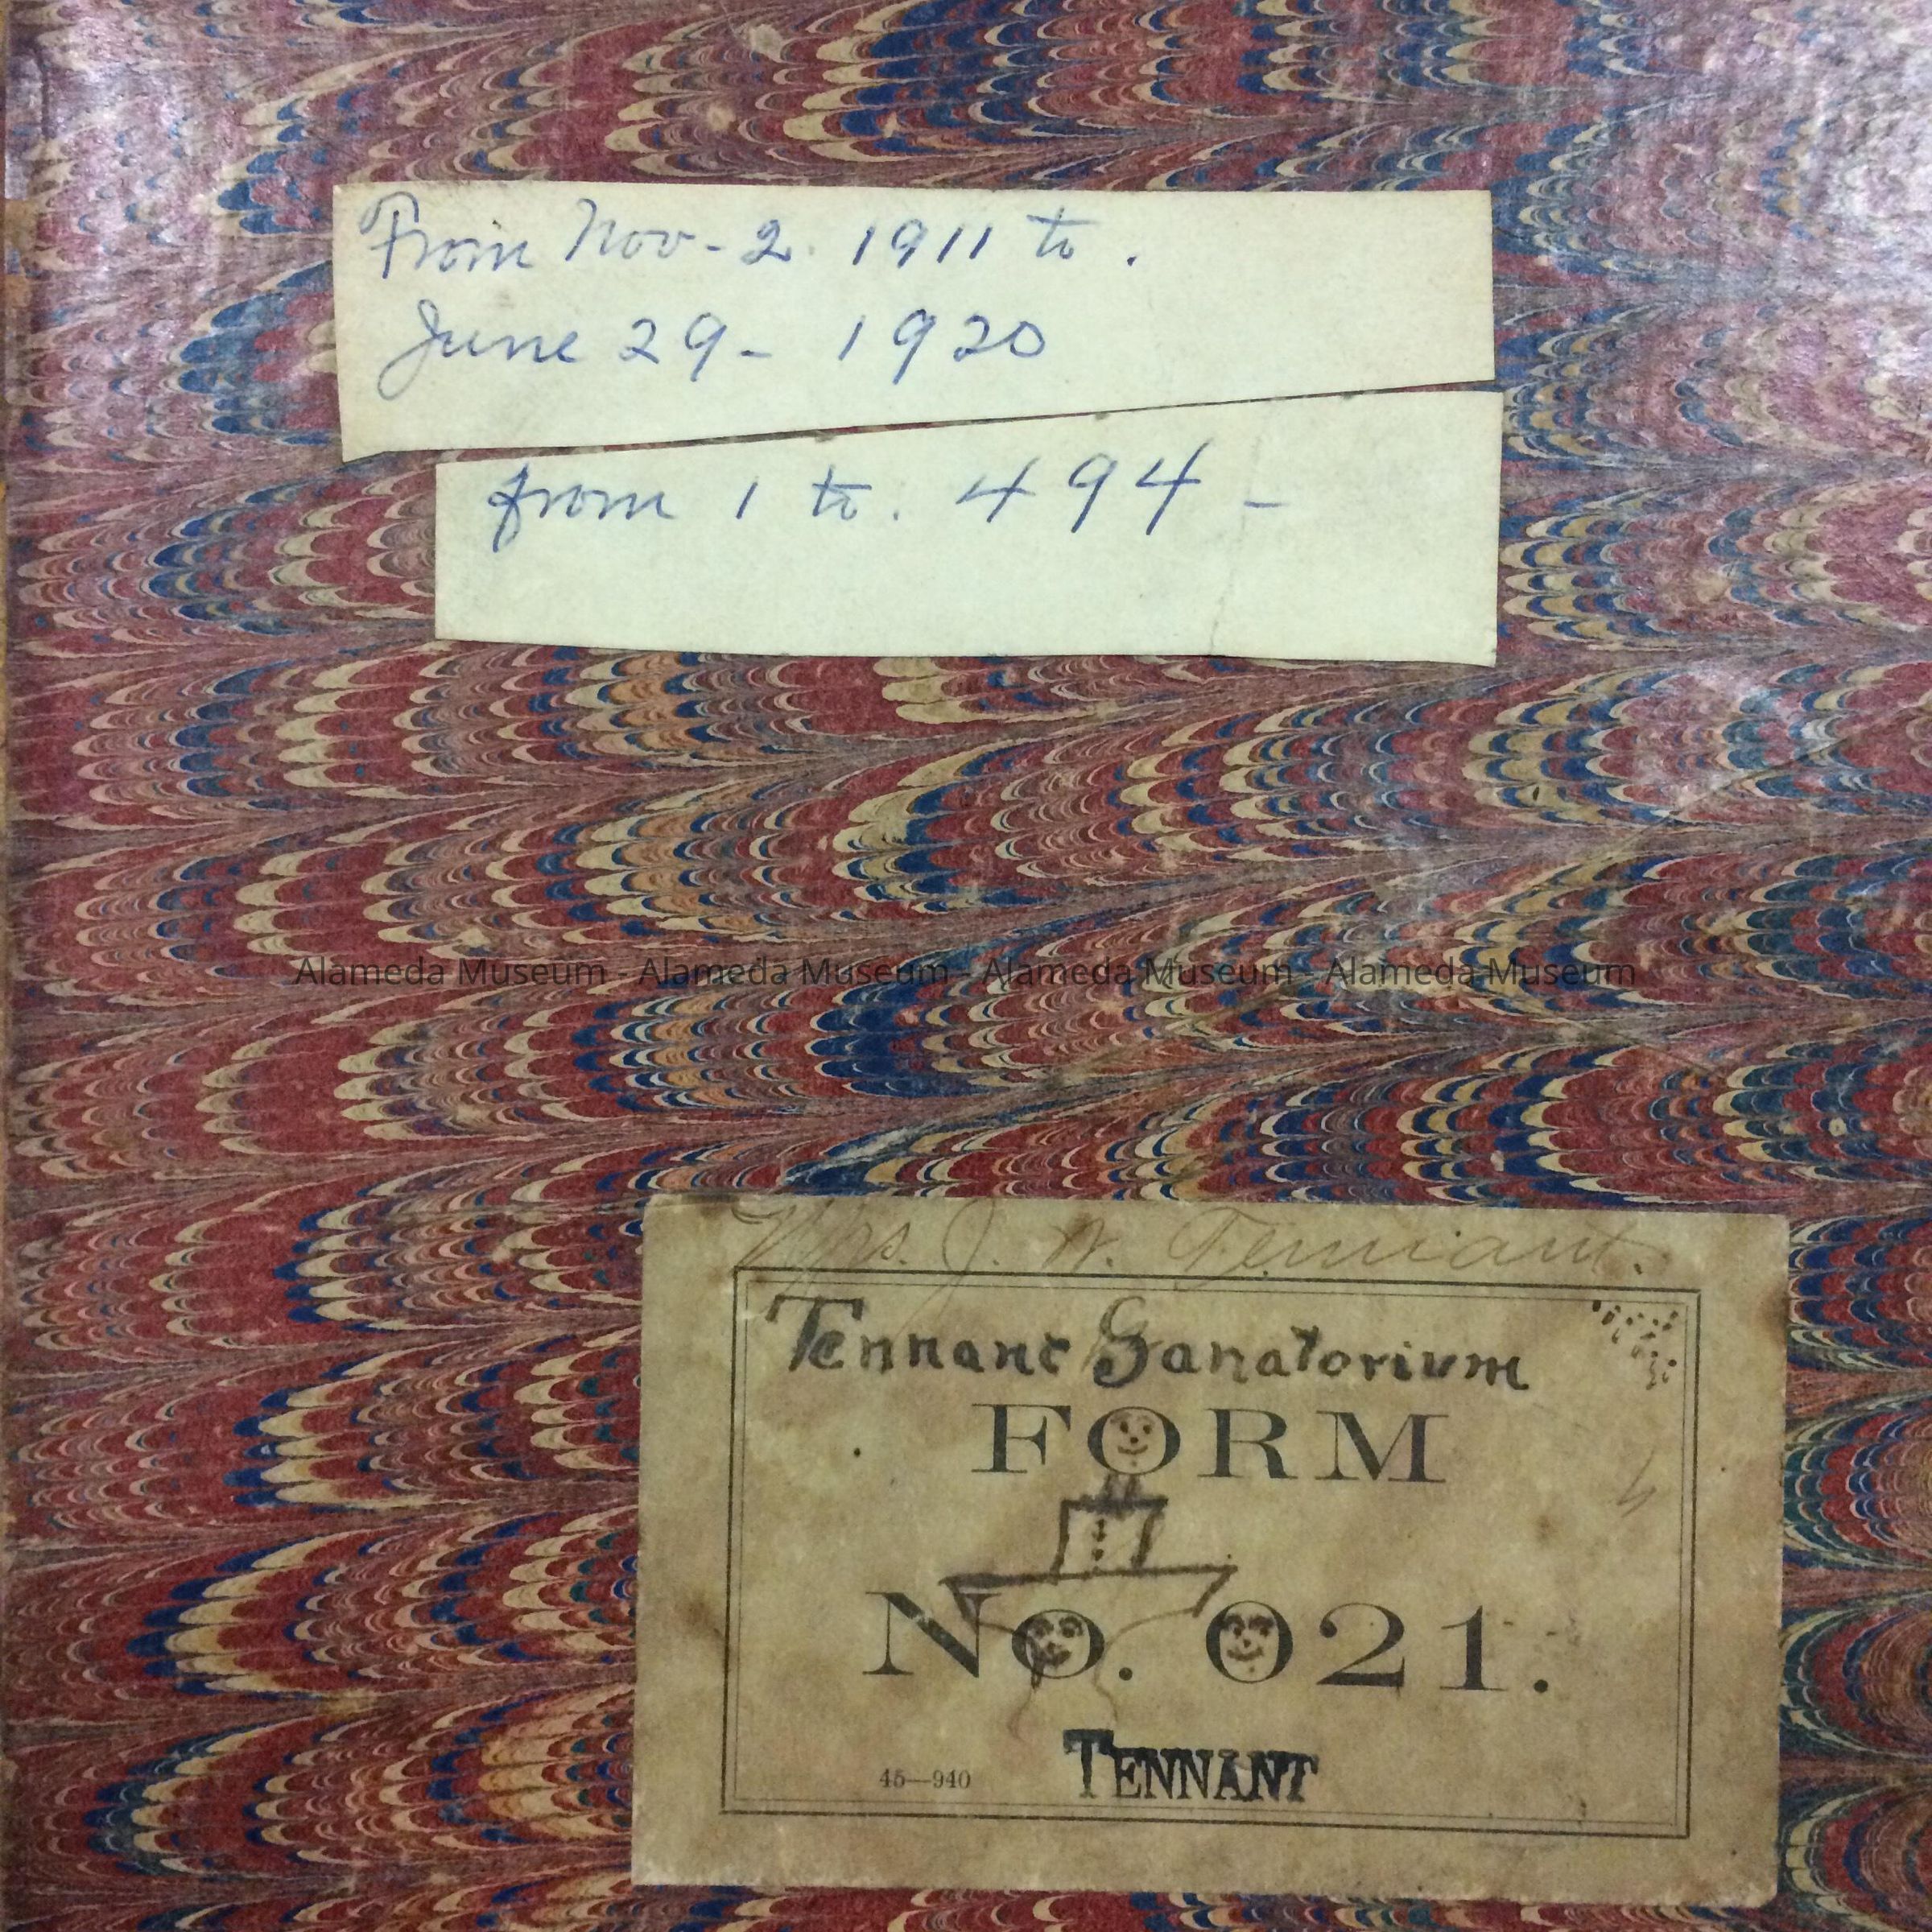 From Nov - 2. 1911 to .
June 29 - 1920
from 1 to. 494 -
Alameda Museum - Alameda Museum - Alameda Museum - Alameda Museum
Mrs. J. W. Tennant.
Tennant Sanatorium
FORM
No. 021.
45—940
TENNANT